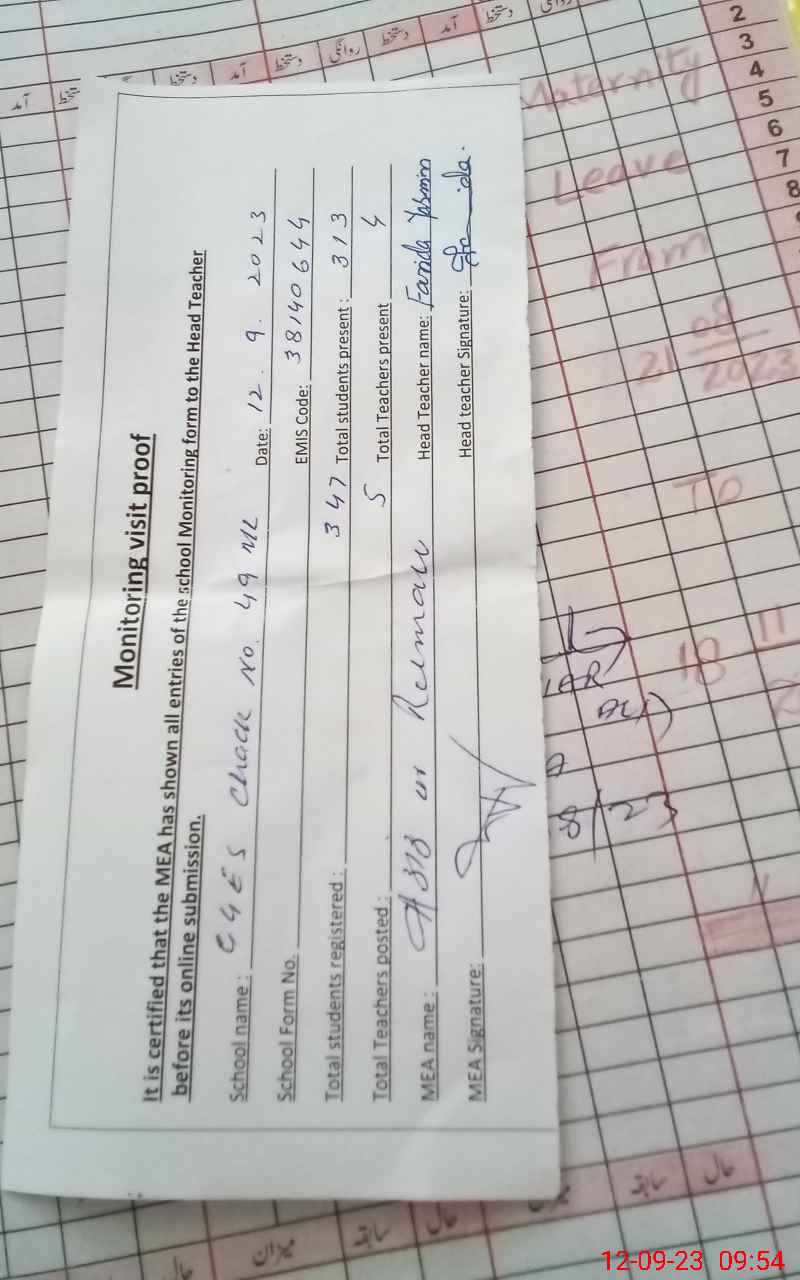 Monitoring visit proof
It is certified that the MEA has shown all entries of the school Monitoring form to the Head Teacher
before its online submission.
School name : CGES Chack No. 49 ML Date: 12 . 9 . 2023
School Form No. EMIS Code: 38140644
Total students registered : 347 Total students present : 313
Total Teachers posted : 5 Total Teachers present 4
MEA name : Head Teacher name: Farida Yasmin
MEA Signature: Head teacher Signature:
آمد دستخط دستخط آمد دستخط روانگی دستخط آمد دستخط
2
3
4
5
6
7
8
Maternity
Leave
From
21 08
2023
TO
18 11
8/23
حال میزان سابقہ حال میزان سابقہ حال
12-09-23 09:54